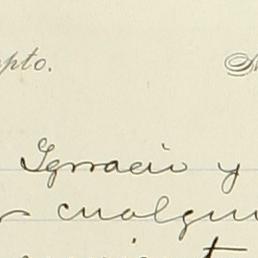 pto.
Ignacio y
cualqui